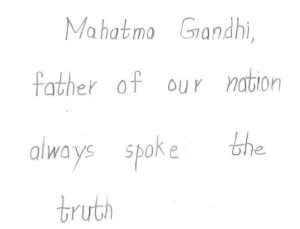 Mahatma Gandhi,
father of our nation
always spoke the
truth